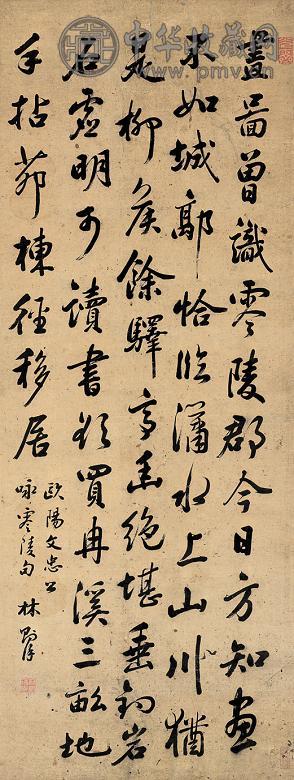 中华收藏网
畫啚曾識零陵郡今日方知畫
不如城郭恰臨瀟水上山川猶
是柳侯餘驛亭幽絕堪垂釣岩
石虛明可讀書欲買冉溪三畝地
手拈茆棟徑移居
歐陽文忠公
咏零陵句 林